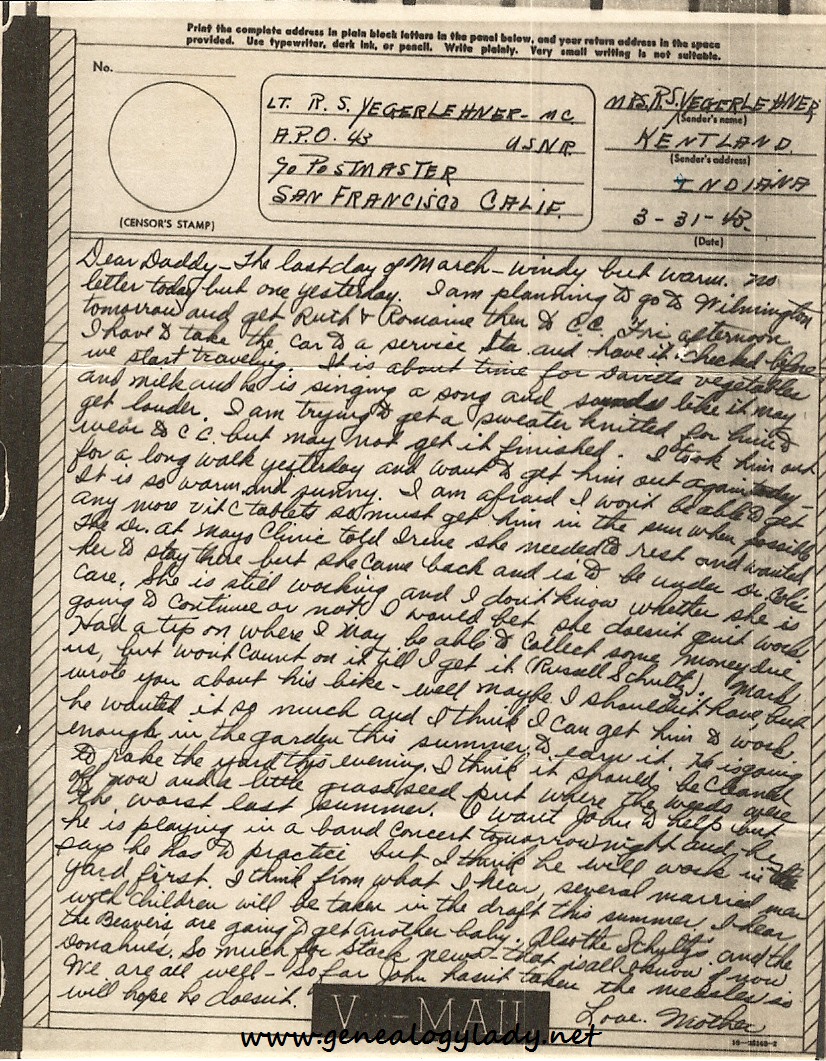 Print the complete address in plain block letters in the panel below, and your return address in the space
provided. Use typewriter, dark ink, or pencil. Write plainly. Very small writing is not suitable.
No.
(CENSOR'S STAMP)
LT. R. S. YEGERLEHNER - MC.
A.P.O. 43 USNR
% POSTMASTER
SAN FRANCISCO CALIF.
MRS. R.S. YEGERLEHNER
(Sender's name)
KENTLAND
(Sender's address)
INDIANA
3-31-43
(Date)
Dear Daddy - The last day of March - windy but warm. No
letter today but one yesterday. I am planning to go to Wilmington
tomorrow and get Ruth & Romaine then to C.C. Fri. afternoon
I have to take the car to a service sta. and have it checked before
we start traveling. It is about time for David's vegetables
and milk and he is singing a song and sounds like it may
get louder. I am trying to get a sweater knitted for him to
wear to C C. but may not get it finished. I took him out
for a long walk yesterday and want to get him out again today -
It is so warm and sunny. I am afraid I won't be able to get
any more Vit C tablets so must get him in the sun when possible
The Dr. at Mayo Clinic told Irene she needed to rest and wanted
her to stay there but she came back and is to be under Dr. Cole's
care. She is still working and I don't know whether she is
going to continue or not. I would bet she doesn't quit work
Had a tip on where I may be able to collect some money due
us, but won't count on it till I get it (Russell Schultz). Mark
wrote you about his bike - well maybe I shouldn't have but
he wanted it so much and I think I can get him to work
enough in the garden this summer to earn it. He is going
to rake the yard this evening. I think it should be cleaned
off now and a little grass seed put where the weeds were
the worst last summer. I want John to help but
he is playing in a band concert tomorrow night and he
says he has to practice but I think he will work in the
yard first. I think from what I hear, several married men
with children will be taken in the draft this summer. I hear
the Beavers are going to get another baby. Also the Schultz's and the
Donahues. So much for Stork news - that is all I know of now
We are all well - So far John hasn't taken the measles so
will hope he doesn't.
Love. Mother
V···-MAIL
16-28143-2
www.genealogylady.net